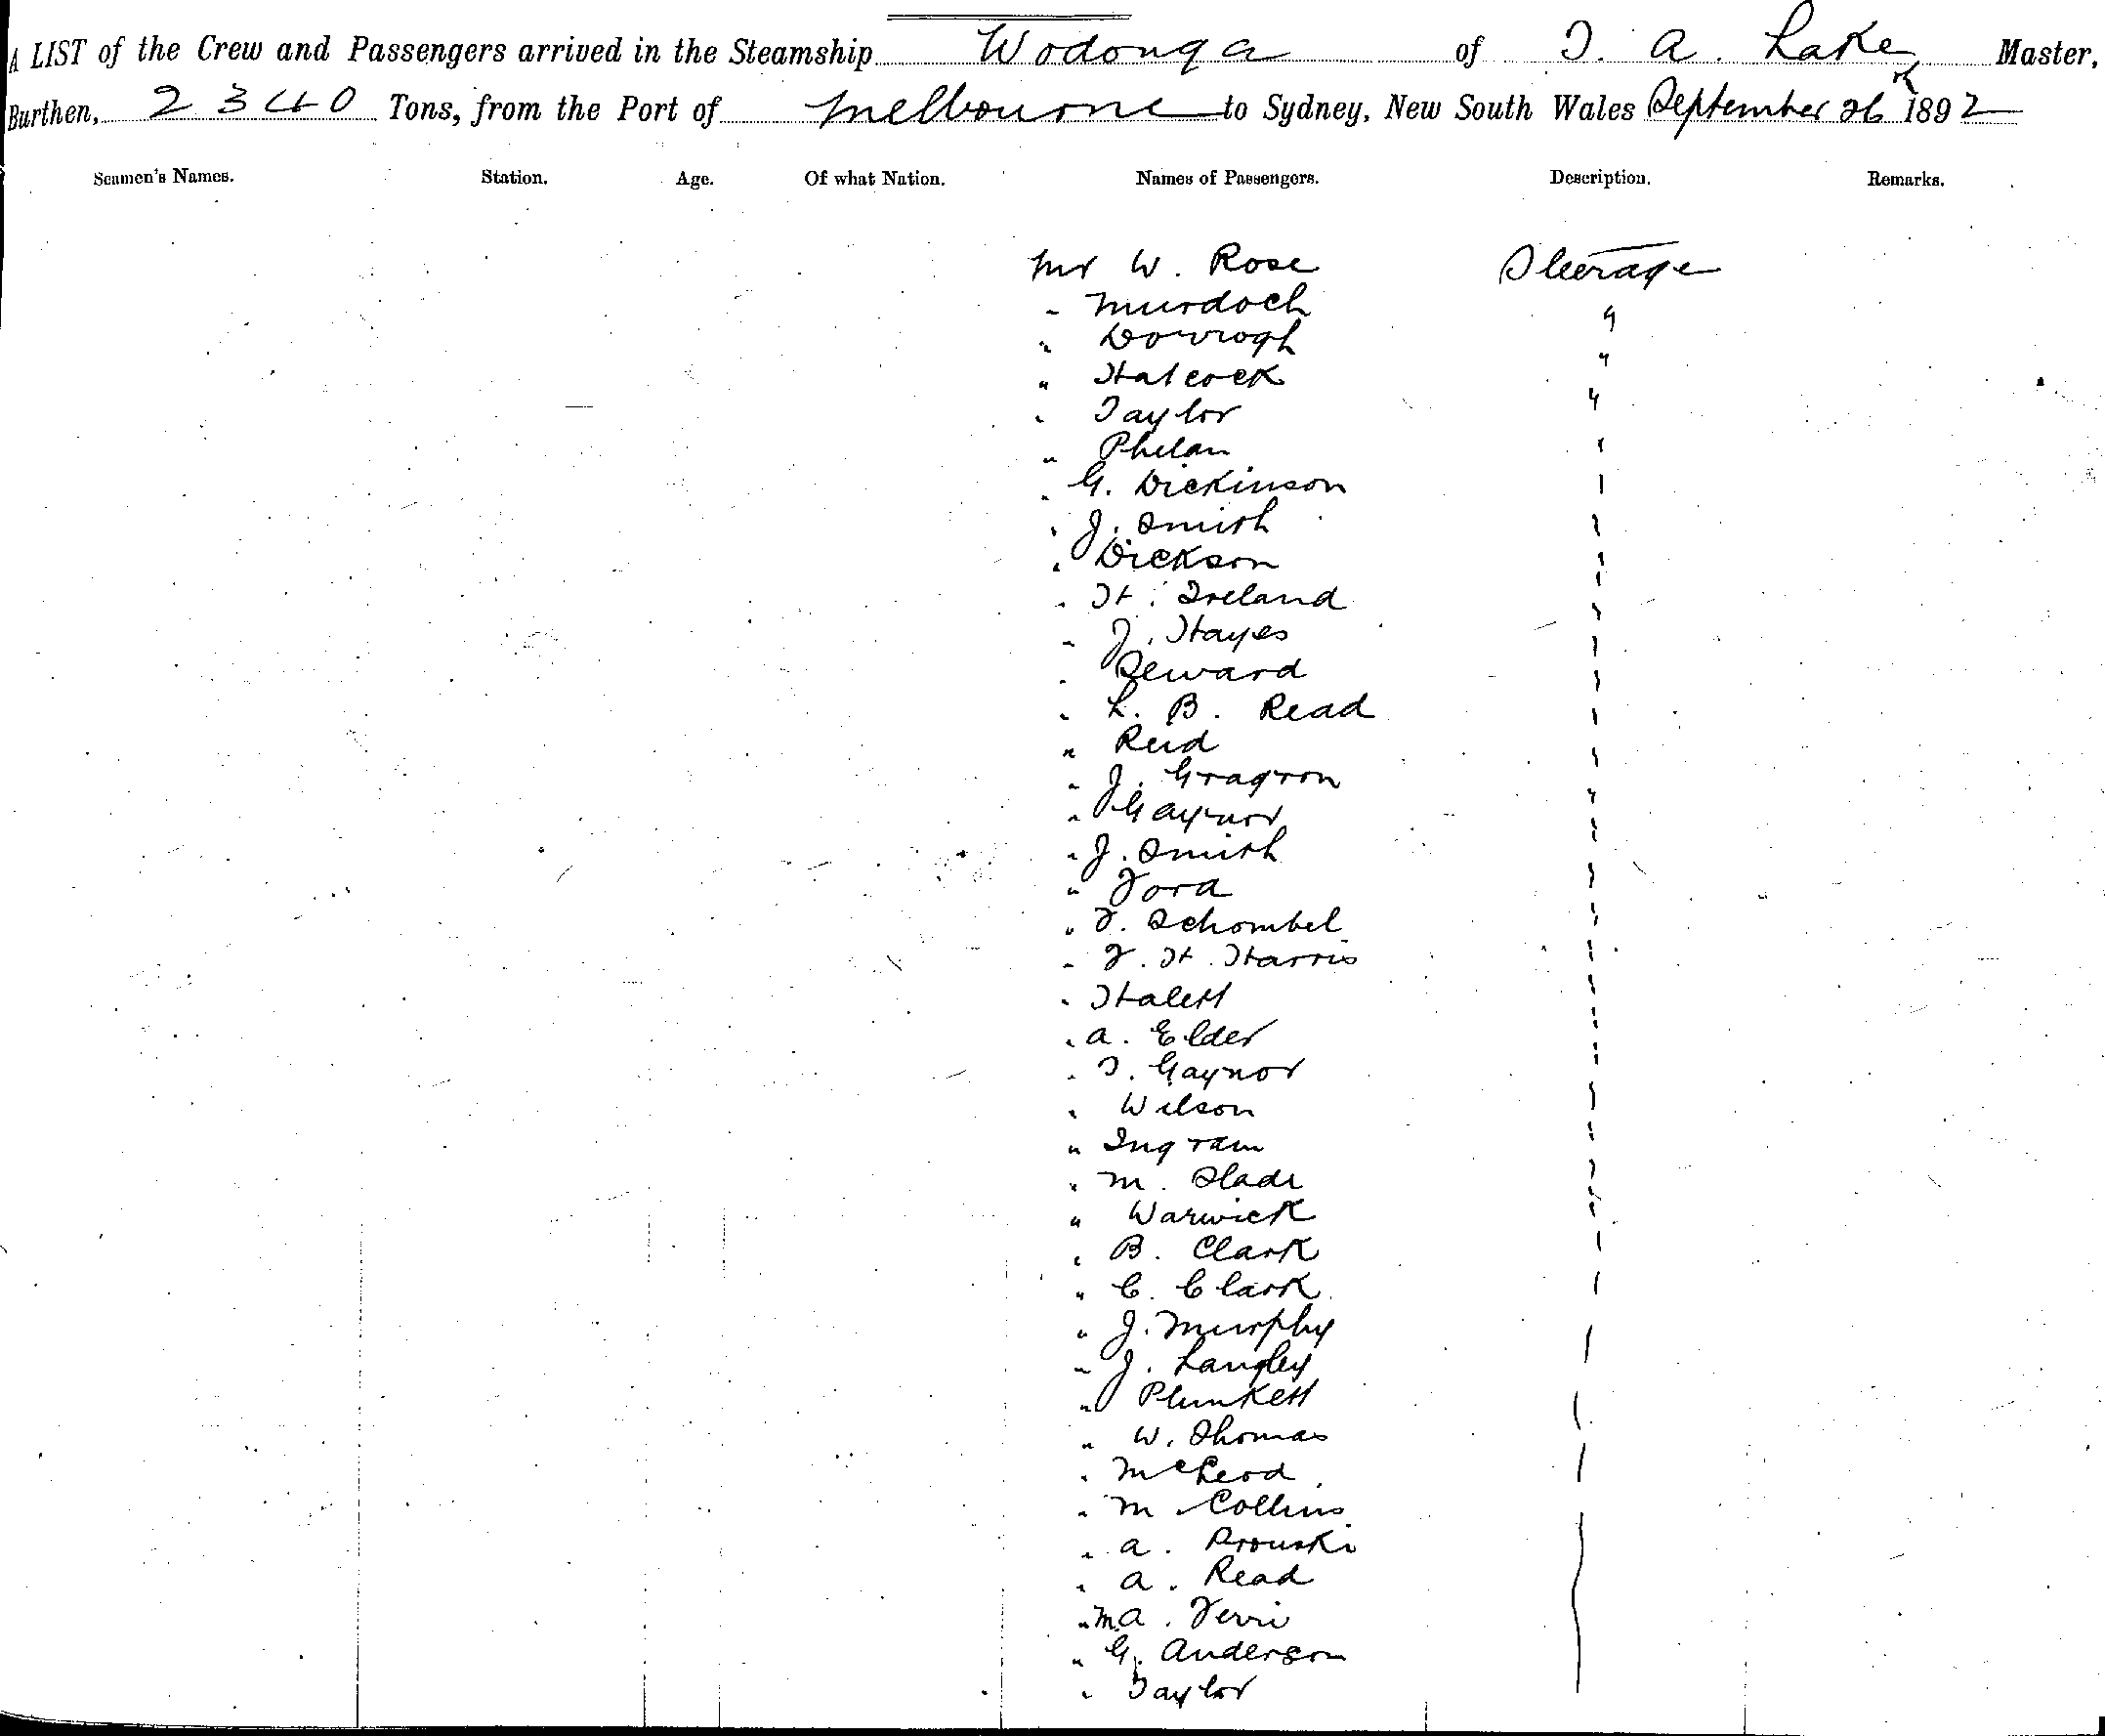 A LIST of the Crew and Passengers arrived in the Steamship Wodonga of T. A. Lake, Master,
Burthen, 2340 Tons, from the Port of Melbourne to Sydney, New South Wales September 26th 1892
Seamen's Names. Station. Age. Of what Nation. Names of Passengers. Description. Remarks.
Mr W. Rose Steerage
" Murdoch "
" Dorrogh "
" Halcock "
" Taylor "
" Phelan "
" G. Dickinson "
" J. Smith "
" Dickson "
" H. Ireland "
" J. Hayes "
" Seward "
" L. B. Read "
" Reid "
" J. Gragron "
" Gaynor "
" J. Smith "
" Ford "
" F. Schombel "
" F. H. Harris "
" Halett "
" A. Elder "
" T. Gaynor "
" Wilson "
" Ingram "
" M. Slade "
" Warwick "
" B. Clark "
" C. Clark "
" J. Murphy "
" J. Langley "
" Plunkett "
" W. Thomas
" McLeod "
" M Collins
" A.
" A. Read
" M.A. Ferri
" G. Anderson
" Taylor